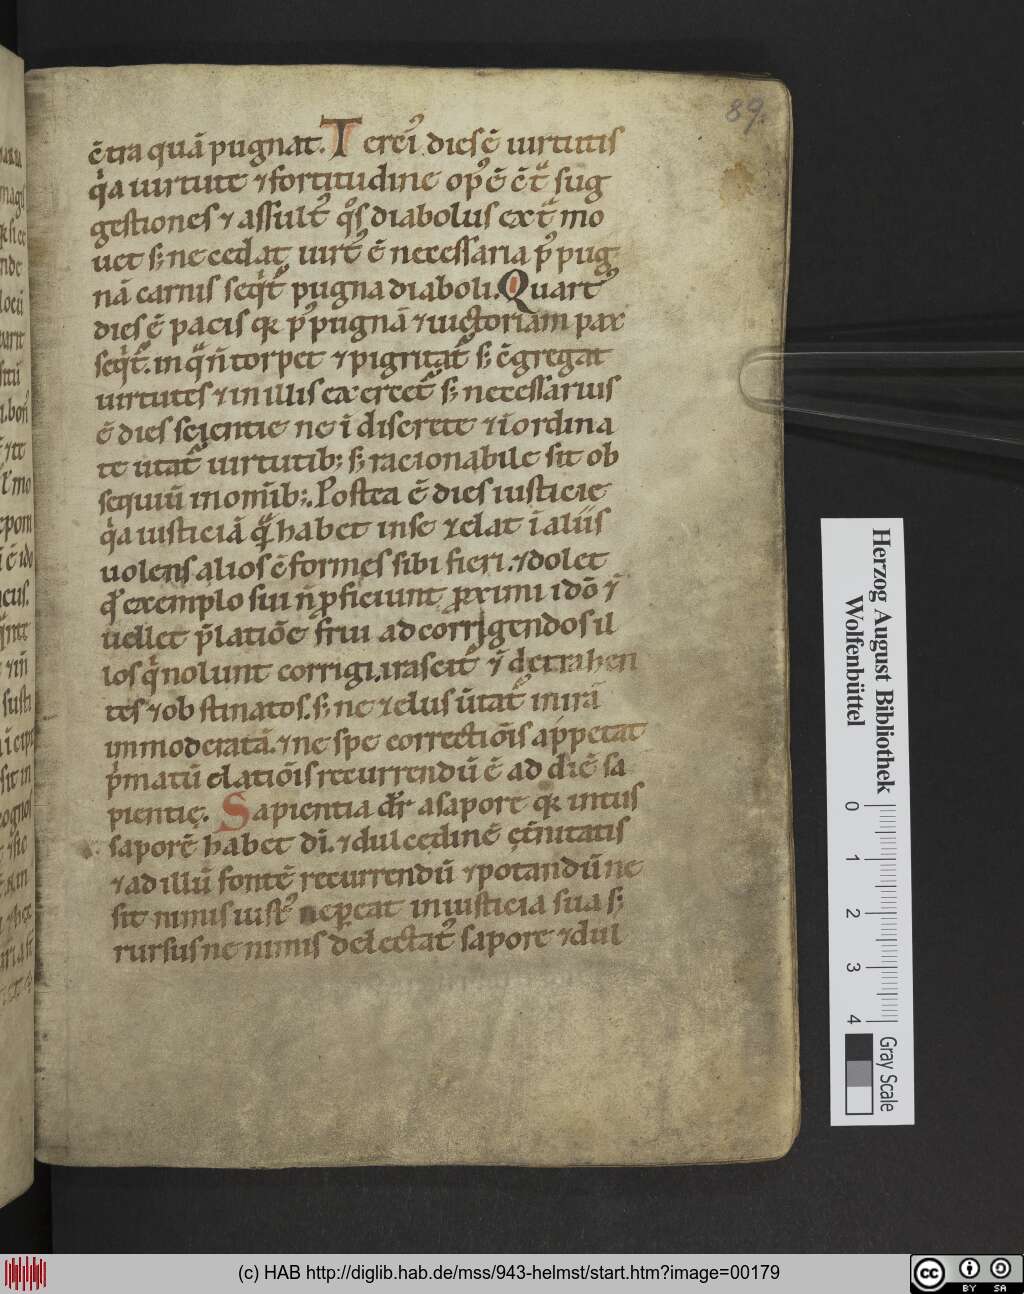 89.
ē̃tra quā pugnat. Tercĩ dies ē uirtutis
q̊a uirtute ⁊ fortitudine op᷒ ē cͣt̄ sug
gestiones ⁊ assult᷒ q̊s diabolus ext̄ͣ mo
uet s; ne cedat. uirt᷒ ē necessaria p᷒ pug
nā carnis seqͥt᷒ pugna diaboli. Quart᷒
dies ē pacis qꝛ p᷒ pugnā ⁊ uictoriam pax
seqͥt᷒. in qͣ n̄ torpet ⁊ pigritat᷒ s; ɔ̄gregat
uirtutes ⁊ in illis exercet᷒ s; necessarius
ē dies scientie ne ī discrete ⁊ ī ordina
te utat᷒ uirtutib; s; racionabile sit ob
sequiū in om̄ib;. Postea ē dies iusticie
q̊a iusticiā qͣ̄ habet in se ⁊ zelat ī aliis
uolens alios ɔ̄formes sibi fieri. ⁊ dolet
qđ exemplo sui n̄ ꝓficiunt ꝓximi idō ⁊
uellet p̄latiōe frui ad corrigendos il
los qͥ nolunt corrigi. irascit᷒ ⁊ detrahen
tes ⁊ obstinatos. s; ne zelus ūtat᷒ in irā
immoderatā. ⁊ ne spe correctiōis appetat
p̄maturū elatiōis recurrendū ē ad diē sa
pientię. Sapientia dr̄ a sapore qꝛ intus
saporē habet dī. ⁊ dulcedinē ęt̄nitatis
⁊ ad illū fontē recurrendū ⁊ potandū ne
sit nimis iust᷒ ne ꝑeat in iusticia sua s;
rursus ne nimis delectat᷒ sapore ⁊ dul
Herzog August Bibliothek
Wolfenbüttel
0 1 2 3 4
Gray Scale
(c) HAB http://diglib.hab.de/mss/943-helmst/start.htm?image=00179
cc BY SA